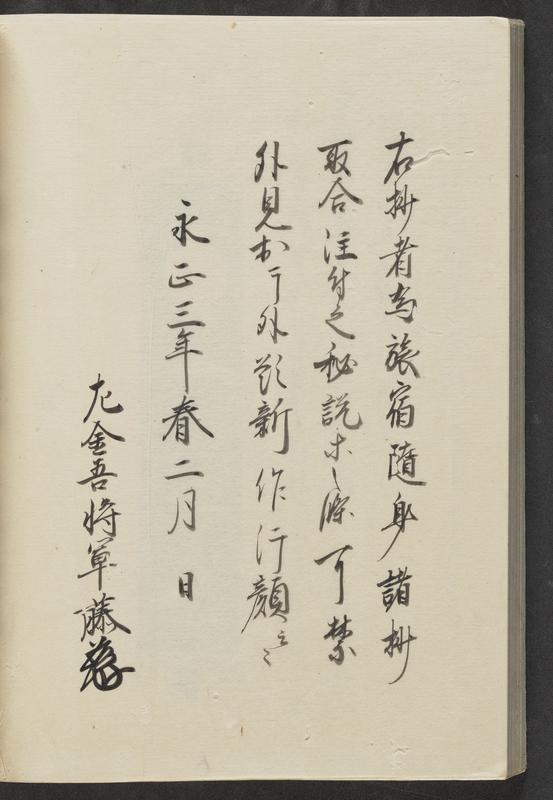 右抄者為旅宿随身諸抄
取合注付之秘説等之条可禁
外見於于外歟新作汗顔云々
永正三年春二月　日
左金吾将軍藤